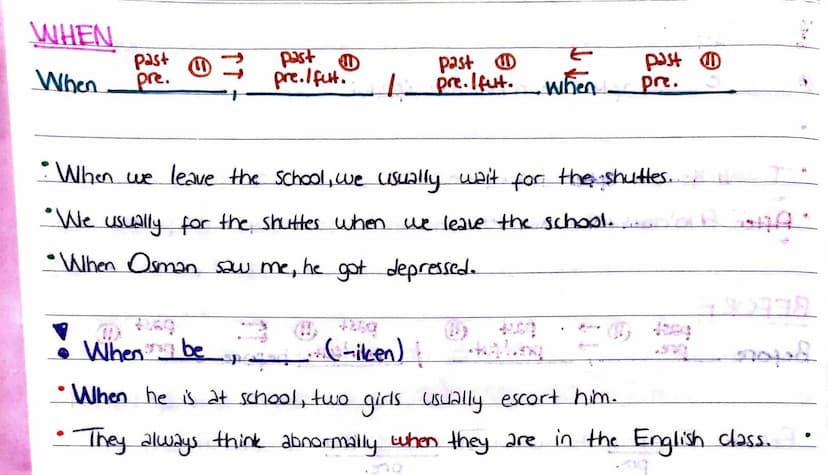 WHEN
past ⑪ → past ⑪ past ⑪ ← past ⑪
pre. → pre./fut. pre./fut. ← pre.
When ________, ________ / ________ when ________
• When we leave the school, we usually wait for the shuttles.
• We usually for the shuttles when we leave the school.
• When Osman saw me, he got depressed.
! When be , ____. (-iken)
• When he is at school, two girls usually escort him.
• They always think abnormally when they are in the English class.